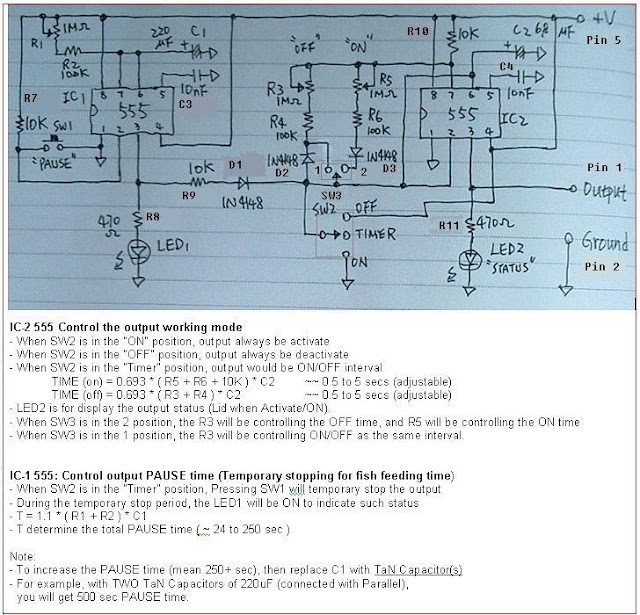 R1
1MΩ
R2
100K
220
µF
+
C1
"OFF"
"ON"
R10
10K
C2 68
µF
+
+V
Pin 5
R7
10K
IC1
8 7 6 5
555
1 2 3 4
10nF
C3
SW1
"PAUSE"
R3
1MΩ
R4
100K
R5
1MΩ
R6
100K
C4
10nF
8 7 6 5
555
1 2 3 4
IC2
10K
R9
D1
1N4148
1N4148
D2
1 2
SW3
1N4148
D3
SW2
OFF
TIMER
ON
Pin 1
Output
470
Ω
R8
LED1
R11
470Ω
LED2
"STATUS"
Ground
Pin 2
IC-2 555 Control the output working mode
- When SW2 is in the "ON" position, output always be activate
- When SW2 is in the "OFF" position, output always be deactivate
- When SW2 is in the "Timer" position, output would be ON/OFF interval
TIME (on) = 0.693 * ( R5 + R6 + 10K ) * C2 ~~ 0.5 to 5 secs (adjustable)
TIME (off) = 0.693 * ( R3 + R4 ) * C2 ~~ 0.5 to 5 secs (adjustable)
- LED2 is for display the output status (Lid when Activate/ON).
- When SW3 is in the 2 position, the R3 will be controlling the OFF time, and R5 will be controlling the ON time
- When SW3 is in the 1 position, the R3 will be controlling ON/OFF as the same interval.
IC-1 555: Control output PAUSE time (Temporary stopping for fish feeding time)
- When SW2 is in the "Timer" position, Pressing SW1 will temporary stop the output
- During the temporary stop period, the LED1 will be ON to indicate such status
- T = 1.1 * ( R1 + R2 ) * C1
- T determine the total PAUSE time ( ~ 24 to 250 sec )
Note:
- To increase the PAUSE time (mean 250+ sec), then replace C1 with TaN Capacitor(s)
- For example, with TWO TaN Capacitors of 220uF (connected with Parallel),
you will get 500 sec PAUSE time.